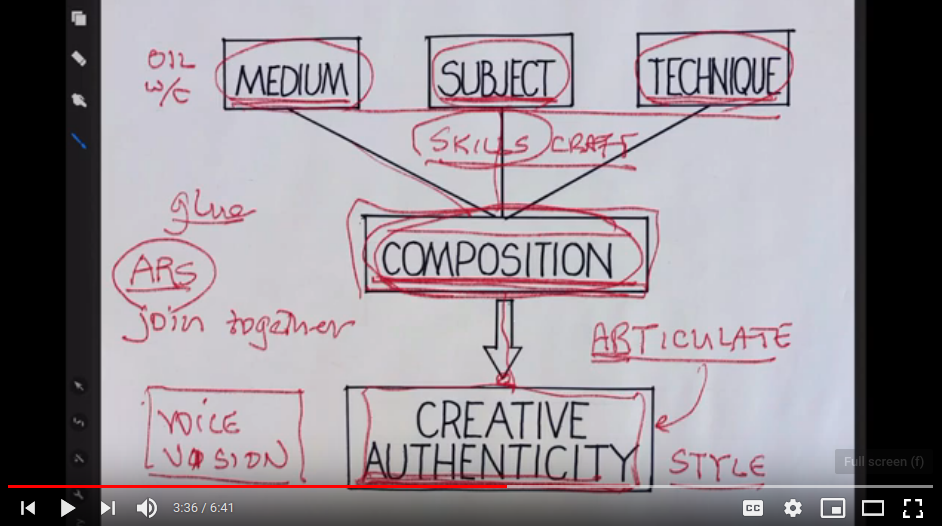 OIL
W/C
MEDIUM
SUBJECT
TECHNIQUE
SKILLS CRAFT
glue
ARS
join together
COMPOSITION
ARTICULATE
VOICE
VISION
CREATIVE
AUTHENTICITY
STYLE
Full screen (f)
3:36 / 6:41
CC